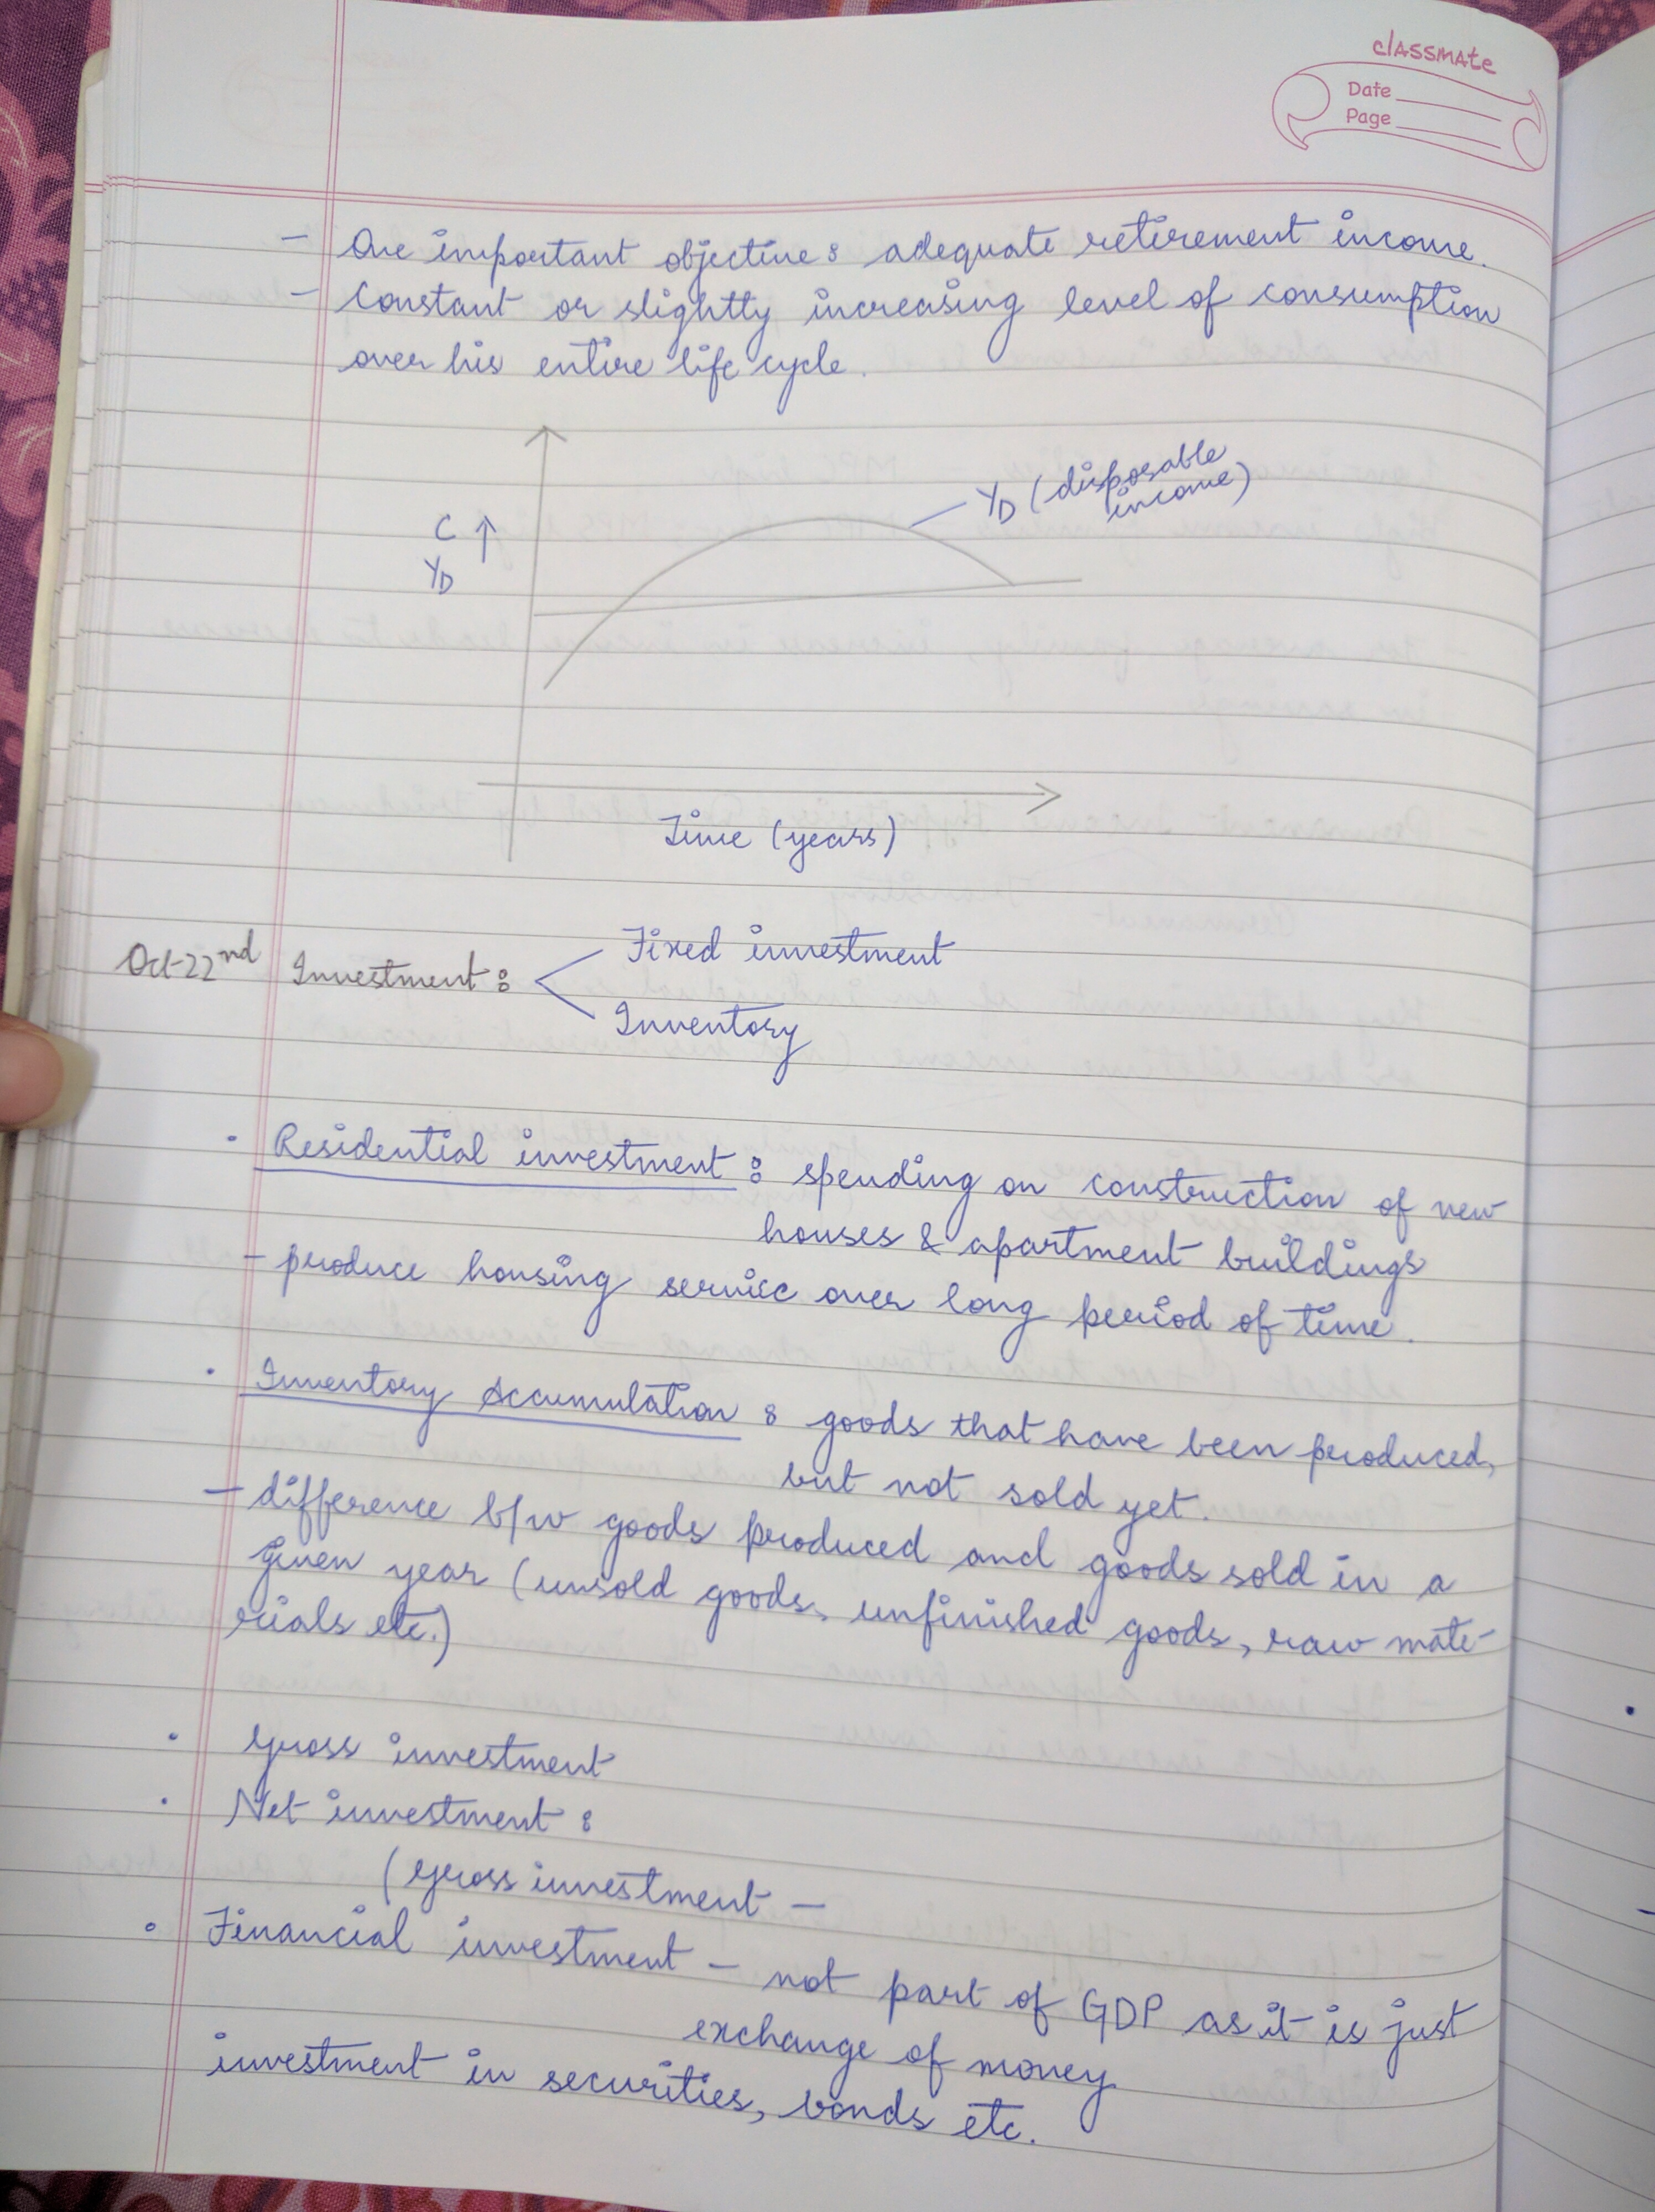 classmate
Date
Page
- One important objective : adequate retirement income.
- Constant or slightly increasing level of consumption
over his entire life cycle.
YD (disposable
income)
C ↑
YD
Time (years)
Oct-22nd Investment :
Fixed investment
Inventory
• Residential investment : spending on construction of new
houses & apartment buildings
- produce housing service over long period of time.
• Inventory Accumulation : goods that have been produced,
but not sold yet.
- difference b/w goods produced and goods sold in a
given year (unsold goods, unfinished goods, raw mate-
rials etc.)
• Gross investment
• Net investment :
(Gross investment -
• Financial investment - not part of GDP as it is just
exchange of money
investment in securities, bonds etc.